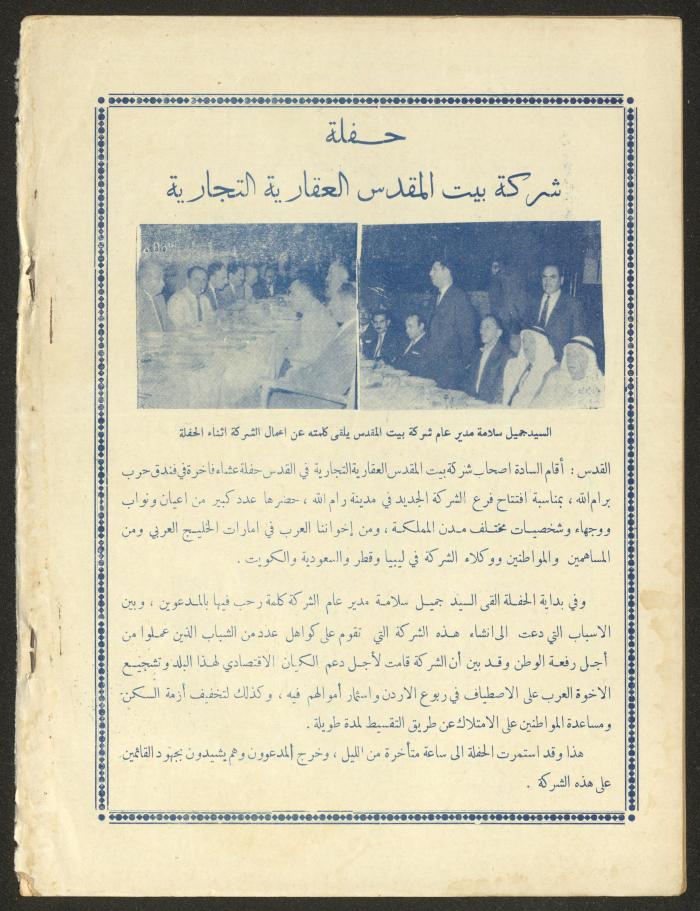 حفلة
شركة بيت المقدس العقارية التجارية
السيد جميل سلامة مدير عام شركة بيت المقدس يلقى كلمته عن اعمال الشركة اثناء الحفلة
القدس : أقام السادة اصحاب شركة بيت المقدس العقارية التجارية في القدس حفلة عشاء فاخرة في فندق حرب
برام الله ، بمناسبة افتتاح فرع الشركة الجديد في مدينة رام الله ، حضرها عدد كبير من اعيان ونواب
ووجهاء وشخصيات مختلف مدن المملكة ، ومن إخواننا العرب في امارات الخليج العربي ومن
المساهمين والمواطنين ووكلاء الشركة في ليبيا وقطر والسعودية والكويت .
وفي بداية الحفلة القى السيد جميل سلامة مدير عام الشركة كلمة رحب فيها بالمدعوين ، وبين
الاسباب التي دعت الى انشاء هذه الشركة التي تقوم على كواهل عدد من الشباب الذين عملوا من
أجل رفعة الوطن وقد بين أن الشركة قامت لأجل دعم الكيان الاقتصادي لهذا البلد وتشجيع
الاخوة العرب على الاصطياف في ربوع الاردن واسثمار أموالهم فيه ، وكذلك لتخفيف أزمة السكن
ومساعدة المواطنين على الامتلاك عن طريق التقسيط لمدة طويلة .
هذا وقد استمرت الحفلة الى ساعة متأخرة من الليل ، وخرج المدعوون وهم يشيدون بجهود القائمين
على هذه الشركة .